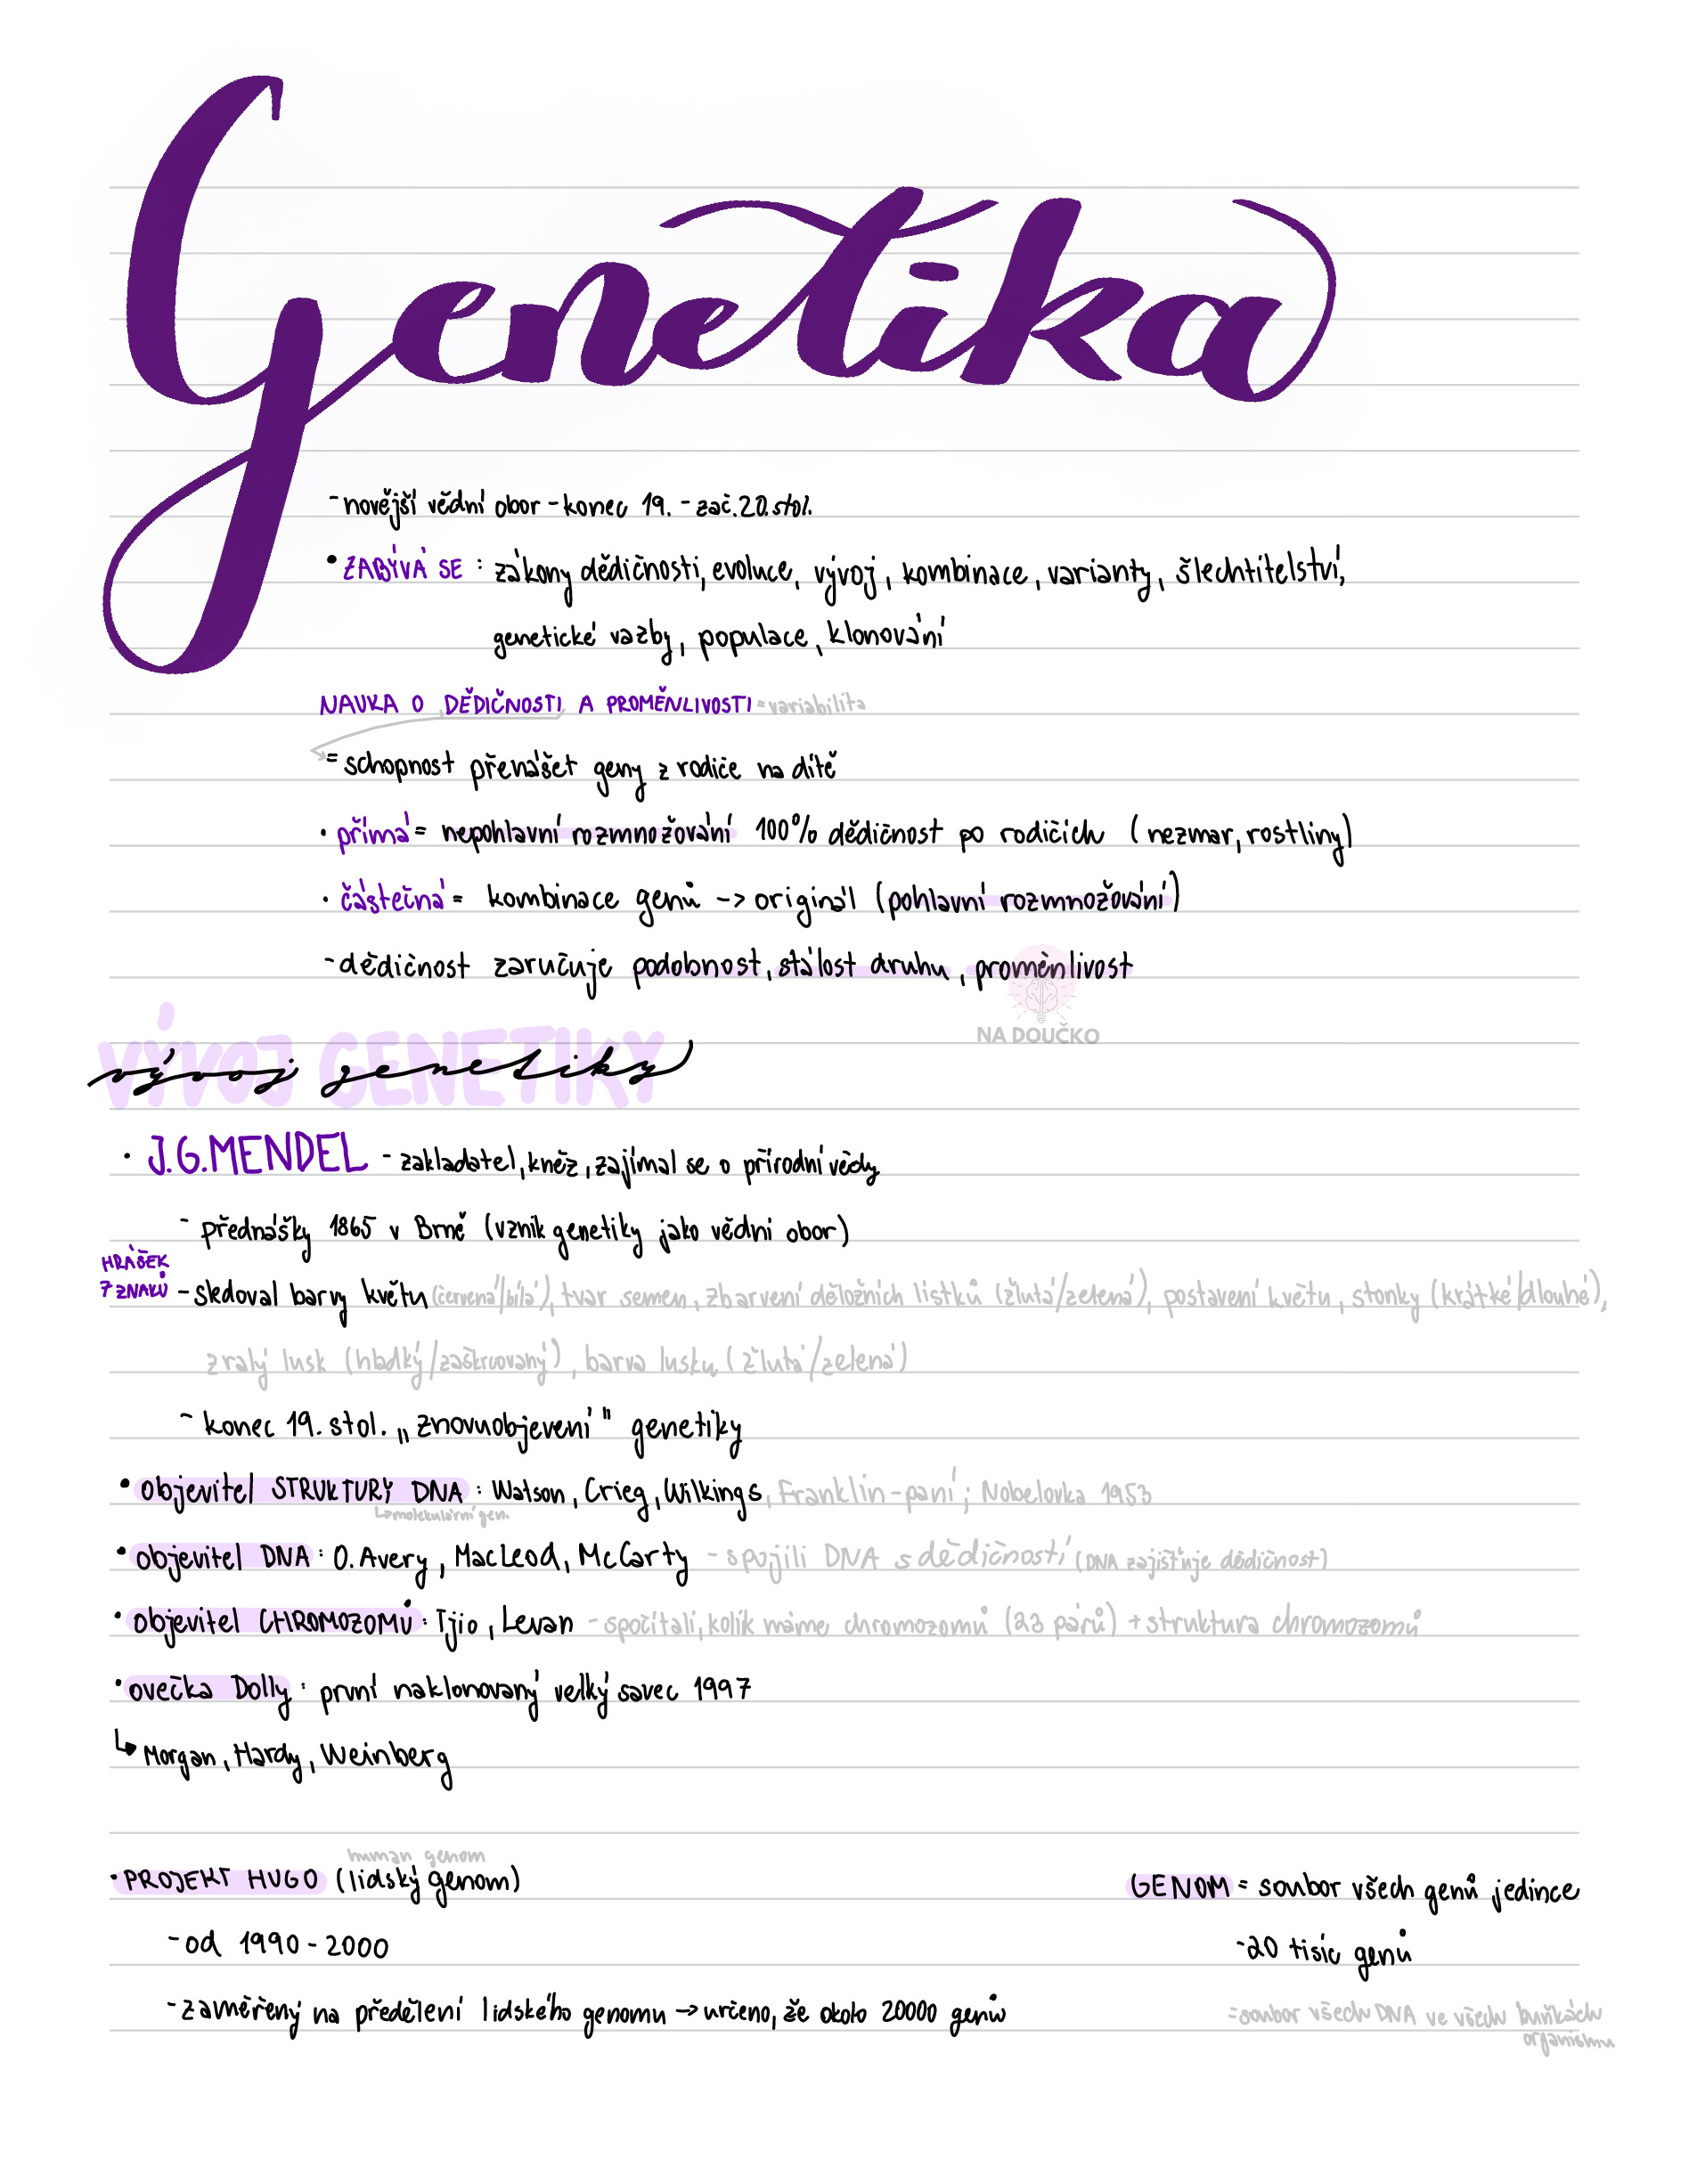 Genetika
- novější vědní obor - konec 19. - zač. 20. stol.
• ZABÝVÁ SE : zákony dědičnosti, evoluce, vývoj, kombinace, varianty, šlechtitelství,
genetické vazby, populace, klonování
NAUKA O DĚDIČNOSTI A PROMĚNLIVOSTI = variabilita
= schopnost přenášet geny z rodiče na dítě
• přímá = nepohlavní rozmnožování 100% dědičnost po rodičích (nezmar, rostliny)
• částečná = kombinace genů -> originál (pohlavní rozmnožování)
- dědičnost zaručuje podobnost, stálost druhu, proměnlivost
NA DOUČKO
VÝVOJ GENETIKY
vývoj genetiky
• J.G.MENDEL - zakladatel, kněz, zajímal se o přírodní vědy
- přednášky 1865 v Brně (vznik genetiky jako vědní obor)
HRÁŠEK
7 ZNAKŮ
- sledoval barvy květu (červená/bílá), tvar semen, zbarvení děložních lístků (žlutá/zelená), postavení květu, stonky (krátké/dlouhé),
zralý lusk (hladký/zaškrcovaný), barva lusku (žlutá/zelená)
- konec 19. stol. „znovuobjevení" genetiky
• objevitel STRUKTURY DNA : Watson, Crieg, Wilkings, Franklin - paní; Nobelovka 1953
↳ molekulární gen.
• objevitel DNA : O. Avery, MacLeod, McCarty - spojili DNA s dědičností (DNA zajišťuje dědičnost)
• objevitel CHROMOZOMŮ : Tjio, Levan - spočítali, kolik máme chromozomů (23 párů) + struktura chromozomů
• ovečka Dolly : první naklonovaný velký savec 1997
↳ Morgan, Hardy, Weinberg
human genom
• PROJEKT HUGO (lidský genom)
- od 1990 - 2000
- zaměřený na předělení lidského genomu -> určeno, že okolo 20000 genů
GENOM = soubor všech genů jedince
- 20 tisíc genů
= soubor všech DNA ve všech buňkách
organismu